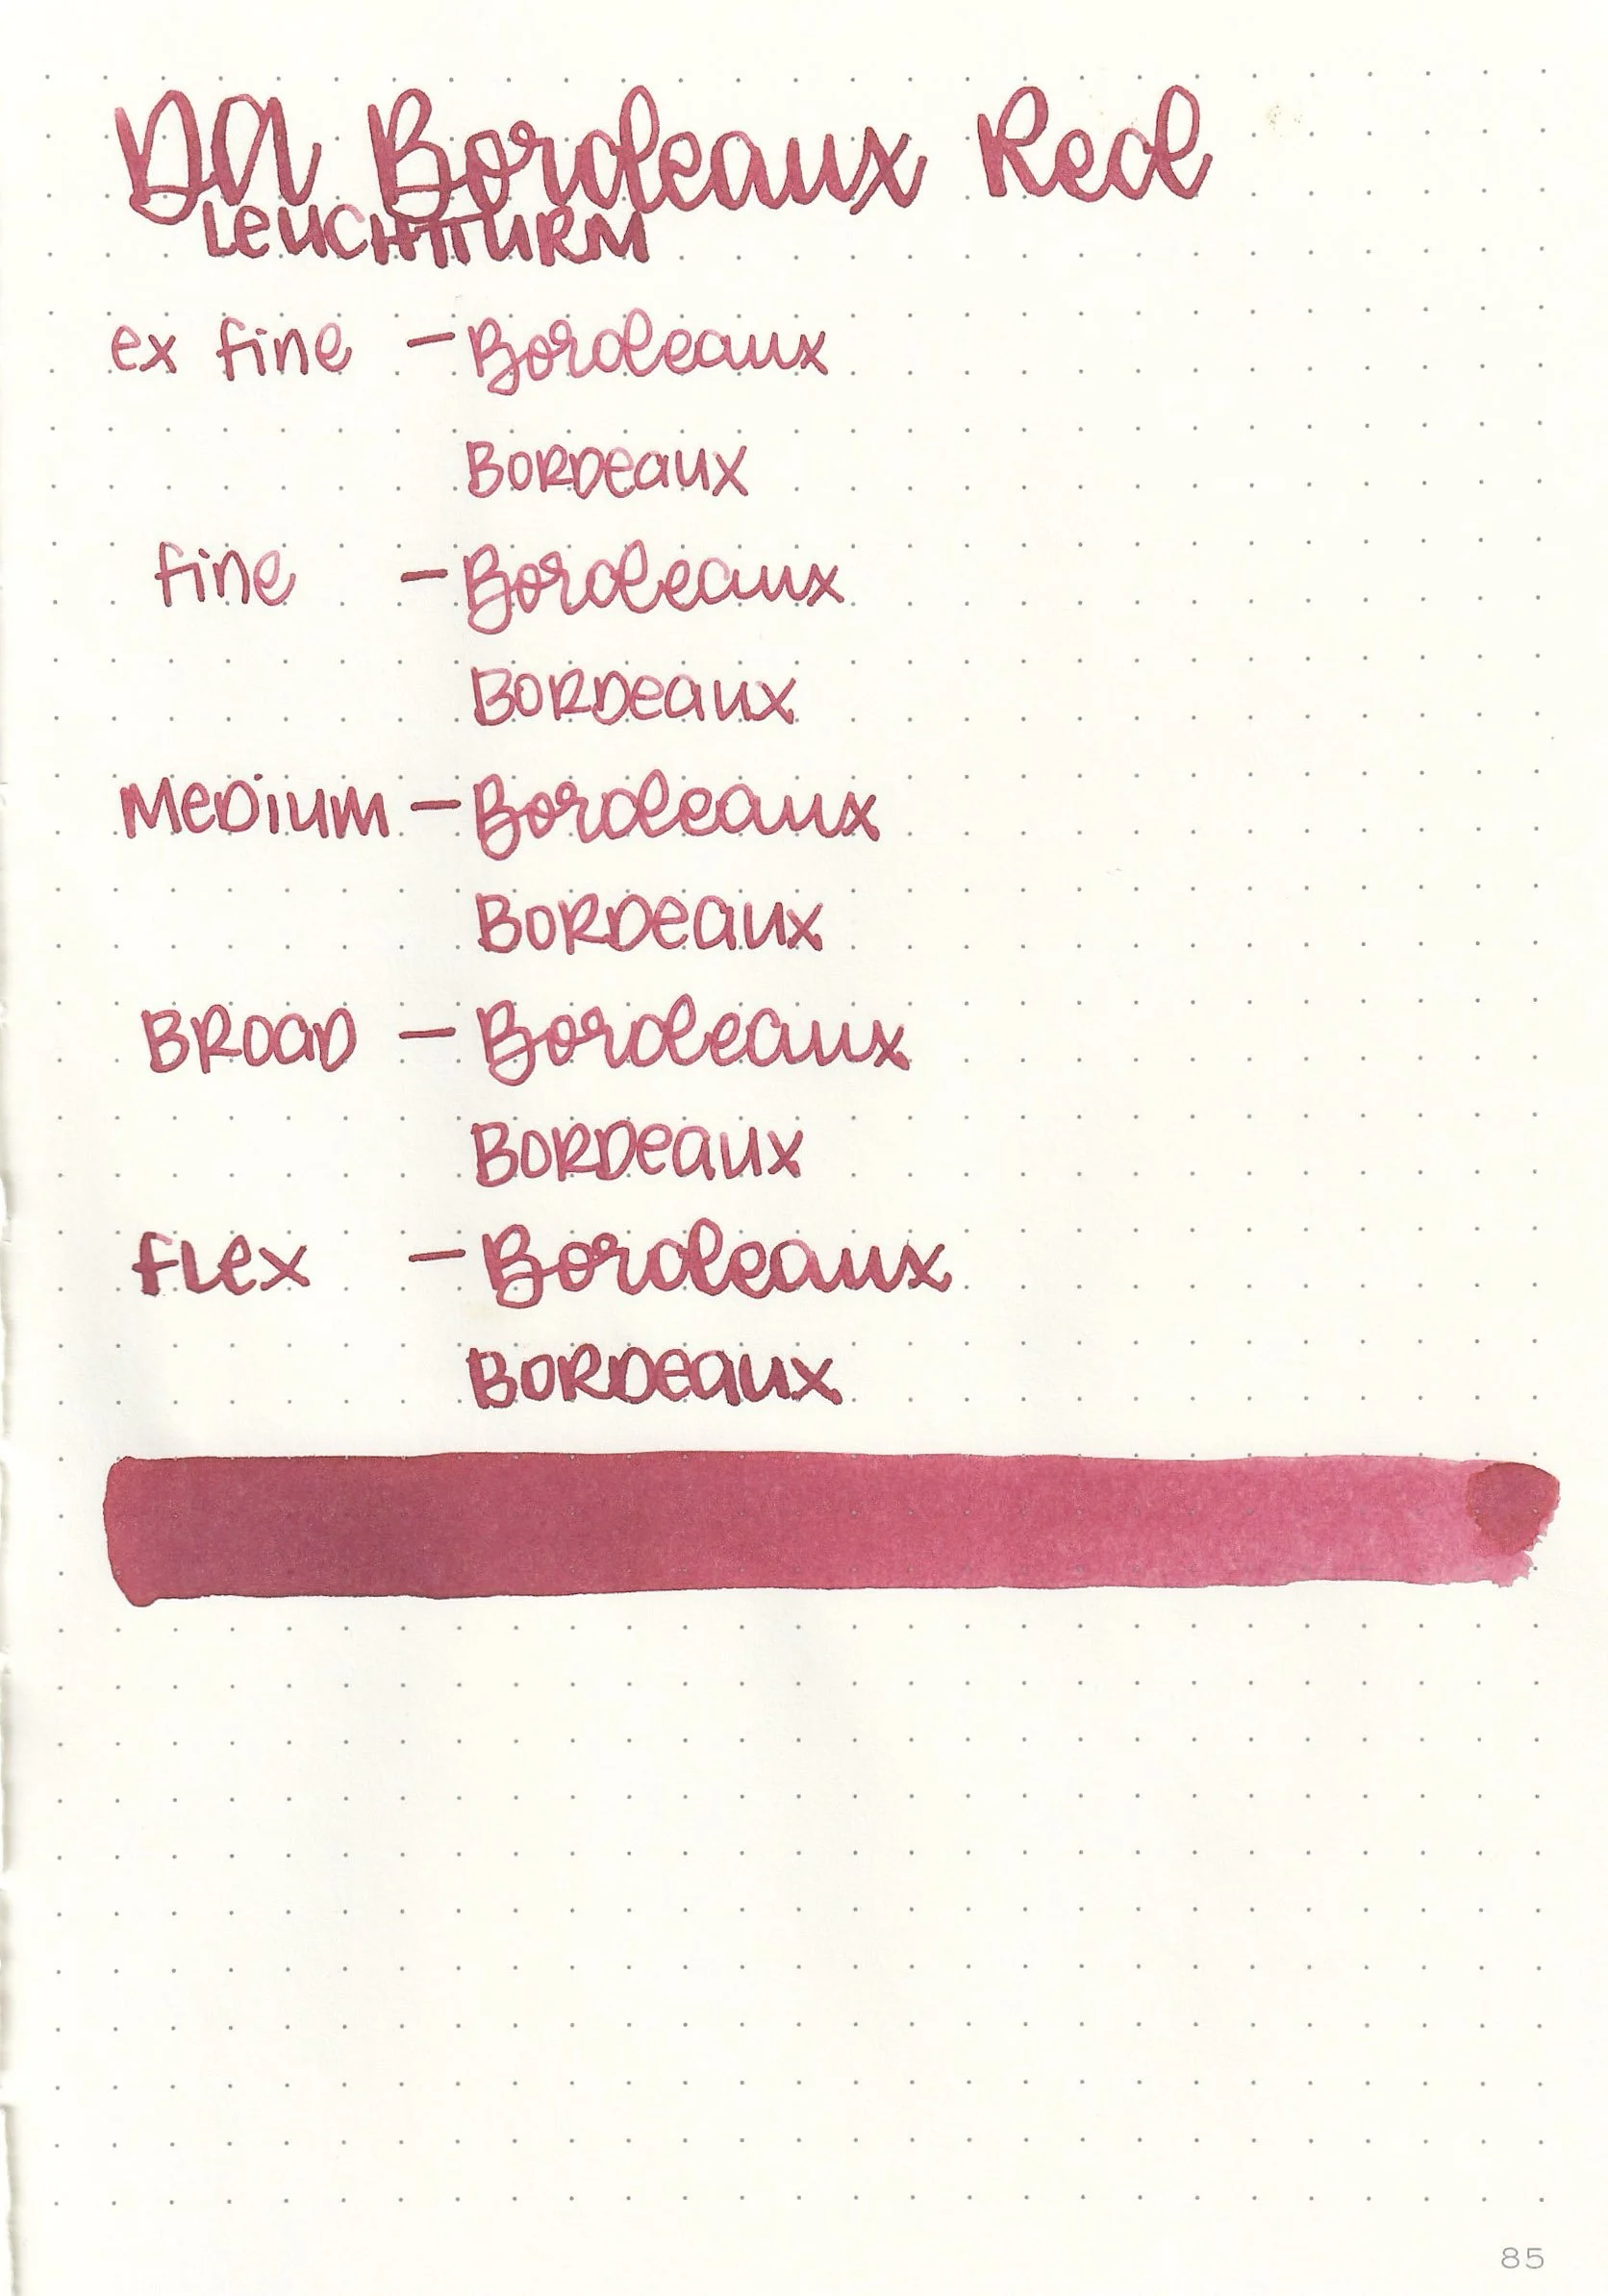 DA Bordeaux Red
LEUCHTTURM
ex fine - Bordeaux
BORDeaux
fine - Bordeaux
BORDeaux
MeDium - Bordeaux
BORDeaux
BROaD - Bordeaux
BORDeaux
fLex - Bordeaux
BORDeaux
85